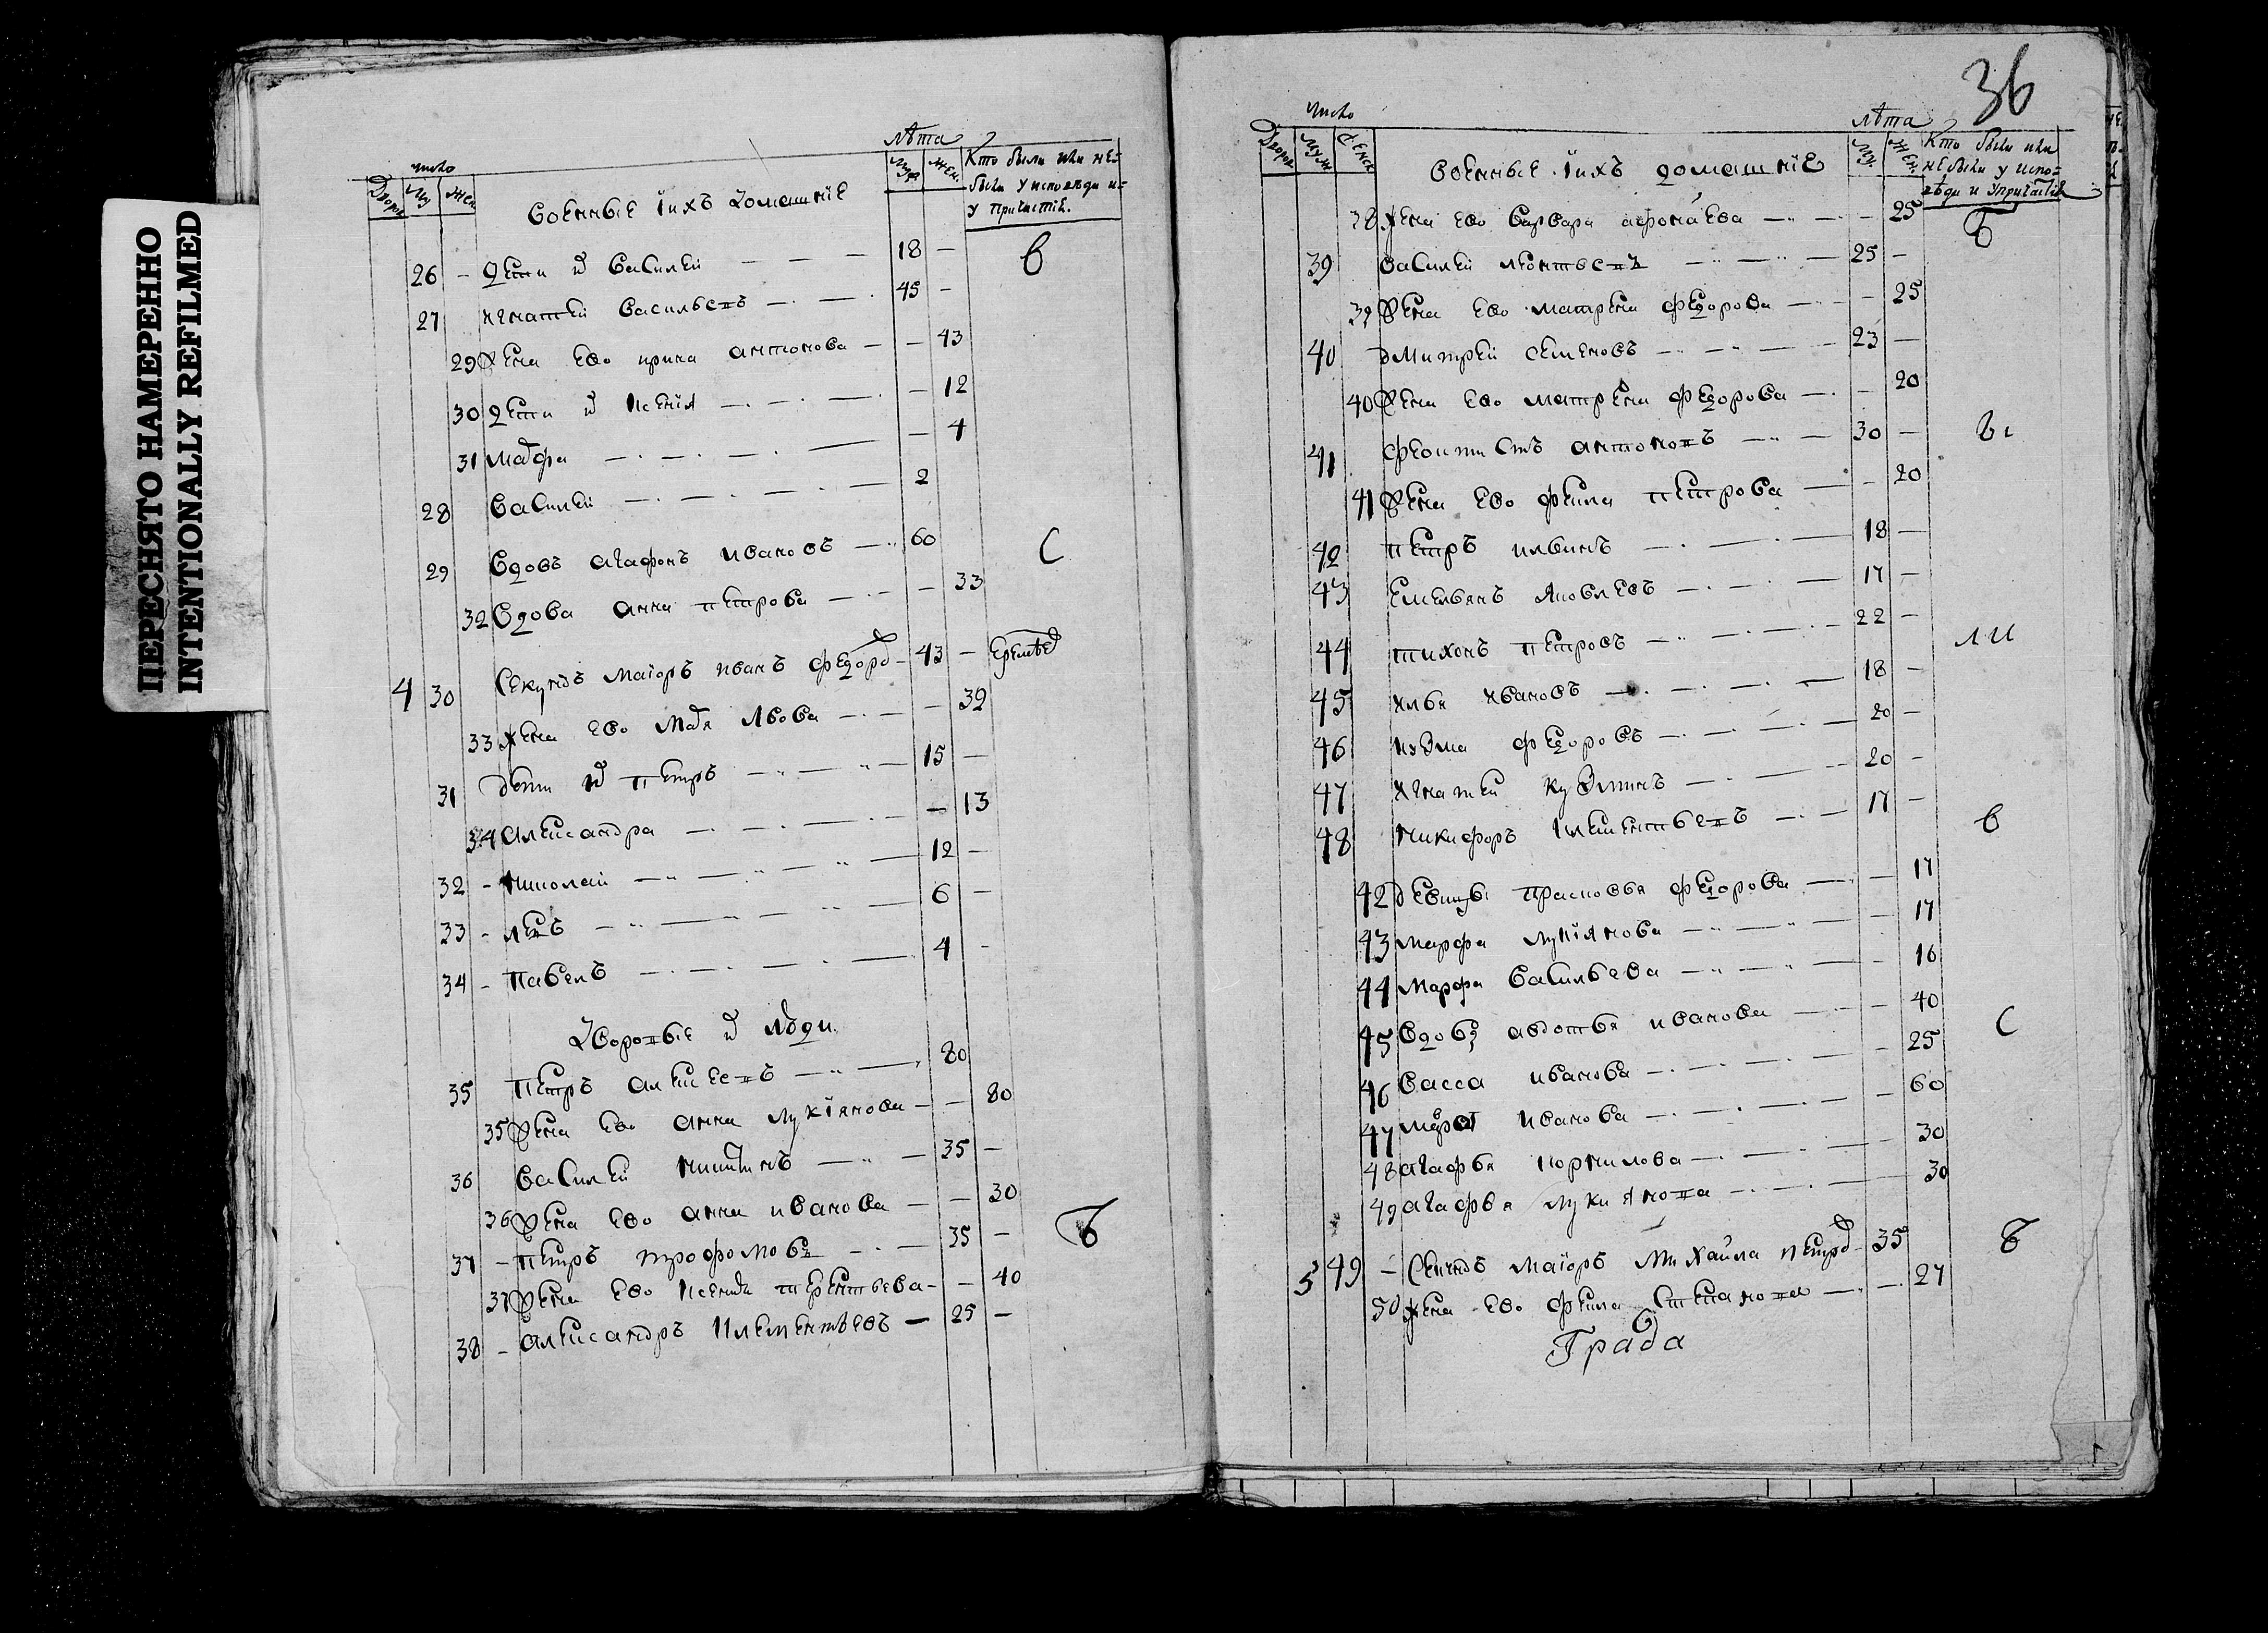 ПЕРЕСНЯТО НАМЕРЕННО
INTENTIONALLY REFILMED
число
лѣта
Дворы Му Жен
военные iихъ домашнiе
Муж Жен.
Кто были или не=
были у исповѣди и=
у причастiя.
26 - дети их Василеи — 18 - в
27 Игнатеи Васильевъ — 45 -
29 Жена ево ирина антонова — - 43
30 дети их Ксенiя — - 12
31 Марфа — - 4
28 Василеи — 2
29 Вдовъ агафонъ ивановъ — 60 с
32 Вдова анна петрова — - 33
4 30 Секундъ маiоръ иванъ федоров - 43 -
33 жена ево Марья Лвова — - 39
31 дети их петръ — 15 -
34 Александра — - 13
32 - Николаи — 12 -
33 - левъ — 6 -
34 - павелъ — 4 -
Дворовые их люди
35 петръ алексеевъ — 80
35 Жена ево анна лукiянова - - 80
36 Василеи никитинъ — 35 -
36 Жена ево анна иванова — - 30
37 - петръ трофомовъ — 35 - Б
37 Жена ево Ксенья терентьева - - 40
38 - александръ Клементьевъ — 25 -
36
число
лѣта
Дворы Муж Женс
военные iихъ домашнiе
Му. Жен.
Кто были или
не были у испо=
вѣди и у причастiя
38 Жена ево Варвара — - 25 Б
39 Василеи леонтьевъ — 25 -
39 Жена ево матрена федорова — - 25
40 дмитреи семеновъ — 23 -
40 Жена ево матрена федорова — - 20
41 феоктистъ антоновъ — 30 - ы
41 Жена ево фекла петрова — - 20
42 петръ ильинъ — 18 -
43 Емельянъ Яковлевъ — 17 -
44 тихонъ петровъ — 22 - ли
45 илья ивановъ — 18 -
46 Кузма федоровъ — 20 -
47 Игнатеи кузминъ — 20 -
48 Никифоръ Клементьевъ — 17 - в
42 девицы прасковья федорова — - 17
43 марфа лукiянова — - 17
44 марфа Васильева — - 16
45 Вдовы авдотья иванова — - 40 с
46 Васса иванова — - 25
47 иванова — - 60
48 агафья Корнилова — - 30
49 агафья лукиянова — 30
5 49 - Секундъ маiоръ михаила петров - 35 Б
50 жена ево фекла степанова — - 27
Града